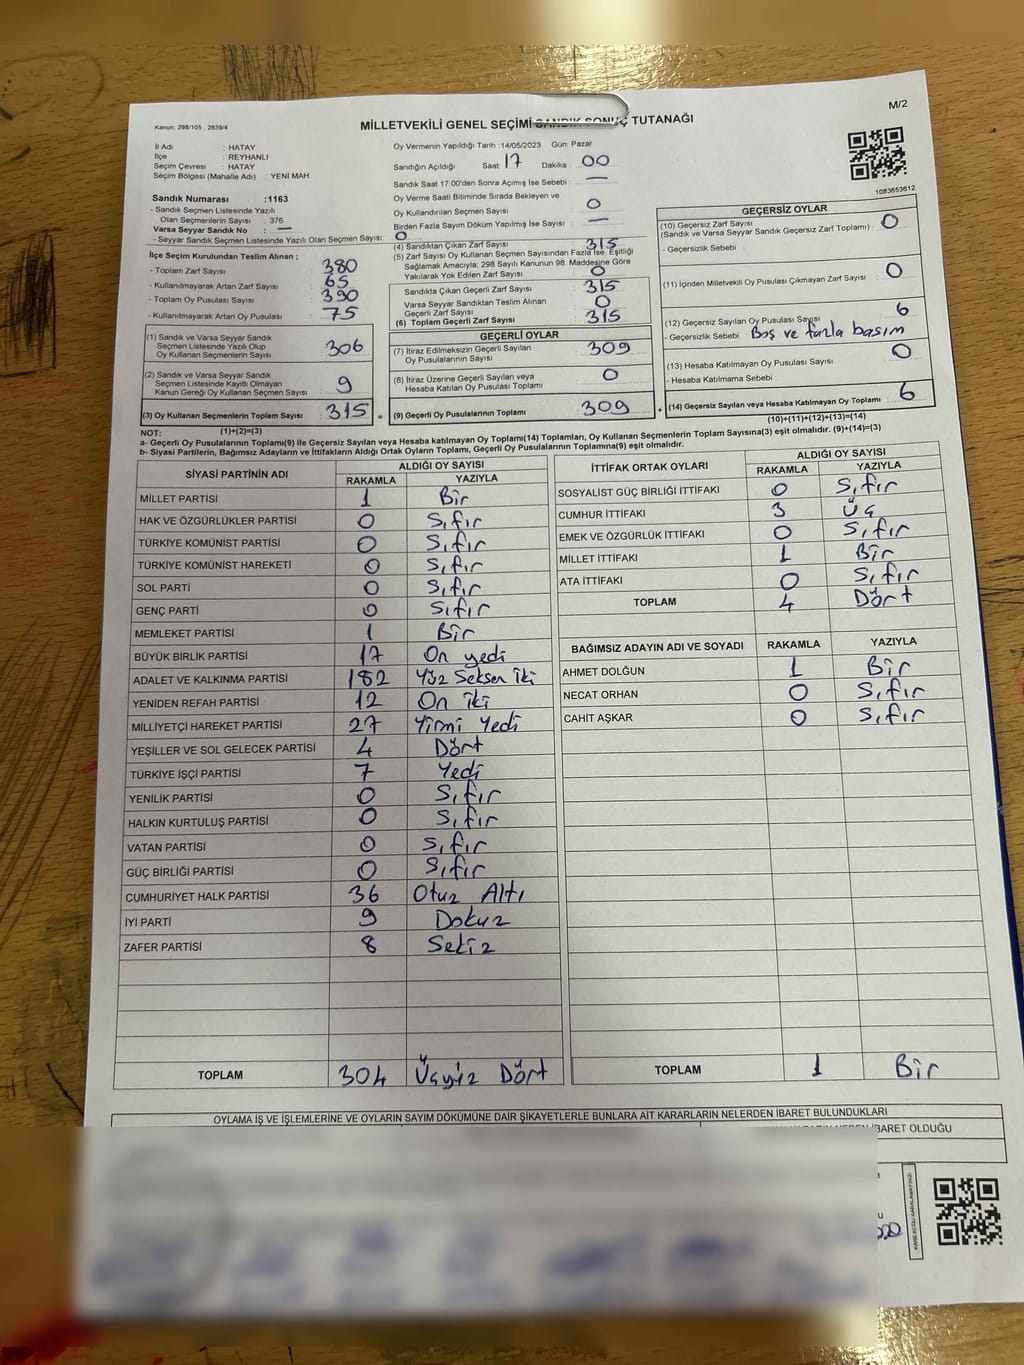 M/2
Kanun: 298/105 , 2839/4
MİLLETVEKİLİ GENEL SEÇİMİ SANDIK SONUÇ TUTANAĞI
İl Adı : HATAY
İlçe : REYHANLI
Seçim Çevresi : HATAY
Seçim Bölgesi (Mahalle Adı) : YENİ MAH
Sandık Numarası :1163
- Sandık Seçmen Listesinde Yazılı
Olan Seçmenlerin Sayısı : 376
Varsa Seyyar Sandık No : —
- Seyyar Sandık Seçmen Listesinde Yazılı Olan Seçmen Sayısı: 0
İlçe Seçim Kurulundan Teslim Alınan ;
- Toplam Zarf Sayısı : 380
- Kullanılmayarak Artan Zarf Sayısı : 65
- Toplam Oy Pusulası Sayısı : 390
- Kullanılmayarak Artan Oy Pusulası : 75
(1) Sandık ve Varsa Seyyar Sandık
Seçmen Listesinde Yazılı Olup
Oy Kullanan Seçmenlerin Sayısı : 306
(2) Sandık ve Varsa Seyyar Sandık
Seçmen Listesinde Kayıtlı Olmayan
Kanun Gereği Oy Kullanan Seçmenlerin Sayısı : 9
(3) Oy Kullanan Seçmenlerin Toplam Sayısı : 315 =
(1)+(2)=(3)
Oy Vermenin Yapıldığı Tarih :14/05/2023 Gün: Pazar
Sandığın Açıldığı Saat: 17 Dakika : 00
Sandık Saat 17:00'den Sonra Açımış İse Sebebi : —
Oy Verme Saati Bitiminde Sırada Bekleyen ve
Oy Kullandırılan Seçmen Sayısı : 0
Birden Fazla Sayım Döküm Yapılmış İse Sayısı : —
(4) Sandıktan Çıkan Zarf Sayısı : 315
(5) Zarf Sayısı Oy Kullanan Seçmen Sayısından Fazla İse, Eşitliği
Sağlamak Amacıyla, 298 Sayılı Kanunun 98. Maddesine Göre
Yakılarak Yok Edilen Zarf Sayısı : 0
Sandıkta Çıkan Geçerli Zarf Sayısı : 315
Varsa Seyyar Sandıktan Teslim Alınan
Geçerli Zarf Sayısı : 0
(6) Toplam Geçerli Zarf Sayısı : 315
GEÇERLİ OYLAR
(7) İtiraz Edilmeksizin Geçerli Sayılan
Oy Pusulalarının Sayısı : 309
(8) İtiraz Üzerine Geçerli Sayılan veya
Hesaba Katılan Oy Pusulası Toplamı : 0
(9) Geçerli Oy Pusulalarının Toplamı : 309 +
1083653612
GEÇERSİZ OYLAR
(10) Geçersiz Zarf Sayısı
(Sandık ve Varsa Seyyar Sandık Geçersiz Zarf Toplamı) : 0
- Geçersizlik Sebebi :
(11) İçinden Milletvekili Oy Pusulası Çıkmayan Zarf Sayısı : 0
(12) Geçersiz Sayılan Oy Pusulası Sayısı : 6
- Geçersizlik Sebebi : Boş ve fazla basım
(13) Hesaba Katılmayan Oy Pusulası Sayısı : 0
- Hesaba Katılmama Sebebi :
(14) Geçersiz Sayılan veya Hesaba Katılmayan Oy Toplamı : 6
(10)+(11)+(12)+(13)=(14)
NOT:
a- Geçerli Oy Pusulalarının Toplamı(9) ile Geçersiz Sayılan veya Hesaba katılmayan Oy Toplamı(14) Toplamları, Oy Kullanan Seçmenlerin Toplam Sayısına(3) eşit olmalıdır. (9)+(14)=(3)
b- Siyasi Partilerin, Bağımsız Adayların ve İttifakların Aldığı Ortak Oyların Toplamı, Geçerli Oy Pusulalarının Toplamına(9) eşit olmalıdır.
SİYASİ PARTİNİN ADI ALDIĞI OY SAYISI
RAKAMLA YAZIYLA
MİLLET PARTİSİ 1 Bir
HAK VE ÖZGÜRLÜKLER PARTİSİ 0 Sıfır
TÜRKİYE KOMÜNİST PARTİSİ 0 Sıfır
TÜRKİYE KOMÜNİST HAREKETİ 0 Sıfır
SOL PARTİ 0 Sıfır
GENÇ PARTİ 0 Sıfır
MEMLEKET PARTİSİ 1 Bir
BÜYÜK BİRLİK PARTİSİ 17 On yedi
ADALET VE KALKINMA PARTİSİ 182 Yüz Seksen İki
YENİDEN REFAH PARTİSİ 12 On iki
MİLLİYETÇİ HAREKET PARTİSİ 27 Yirmi Yedi
YEŞİLLER VE SOL GELECEK PARTİSİ 4 Dört
TÜRKİYE İŞÇİ PARTİSİ 7 Yedi
YENİLİK PARTİSİ 0 Sıfır
HALKIN KURTULUŞ PARTİSİ 0 Sıfır
VATAN PARTİSİ 0 Sıfır
GÜÇ BİRLİĞİ PARTİSİ 0 Sıfır
CUMHURİYET HALK PARTİSİ 36 Otuz Altı
İYİ PARTİ 9 Dokuz
ZAFER PARTİSİ 8 Sekiz
TOPLAM 304 Üçyüz Dört
İTTİFAK ORTAK OYLARI ALDIĞI OY SAYISI
RAKAMLA YAZIYLA
SOSYALİST GÜÇ BİRLİĞİ İTTİFAKI 0 Sıfır
CUMHUR İTTİFAKI 3 Üç
EMEK VE ÖZGÜRLÜK İTTİFAKI 0 Sıfır
MİLLET İTTİFAKI 1 Bir
ATA İTTİFAKI 0 Sıfır
TOPLAM 4 Dört
BAĞIMSIZ ADAYIN ADI VE SOYADI RAKAMLA YAZIYLA
AHMET DOLĞUN 1 Bir
NECAT ORHAN 0 Sıfır
CAHİT AŞKAR 0 Sıfır
TOPLAM 1 Bir
OYLAMA İŞ VE İŞLEMLERİNE VE OYLARIN SAYIM DÖKÜMÜNE DAİR ŞİKAYETLERLE BUNLARA AİT KARARLARIN NELERDEN İBARET BULUNDUKLARI
İBARET OLDUĞU